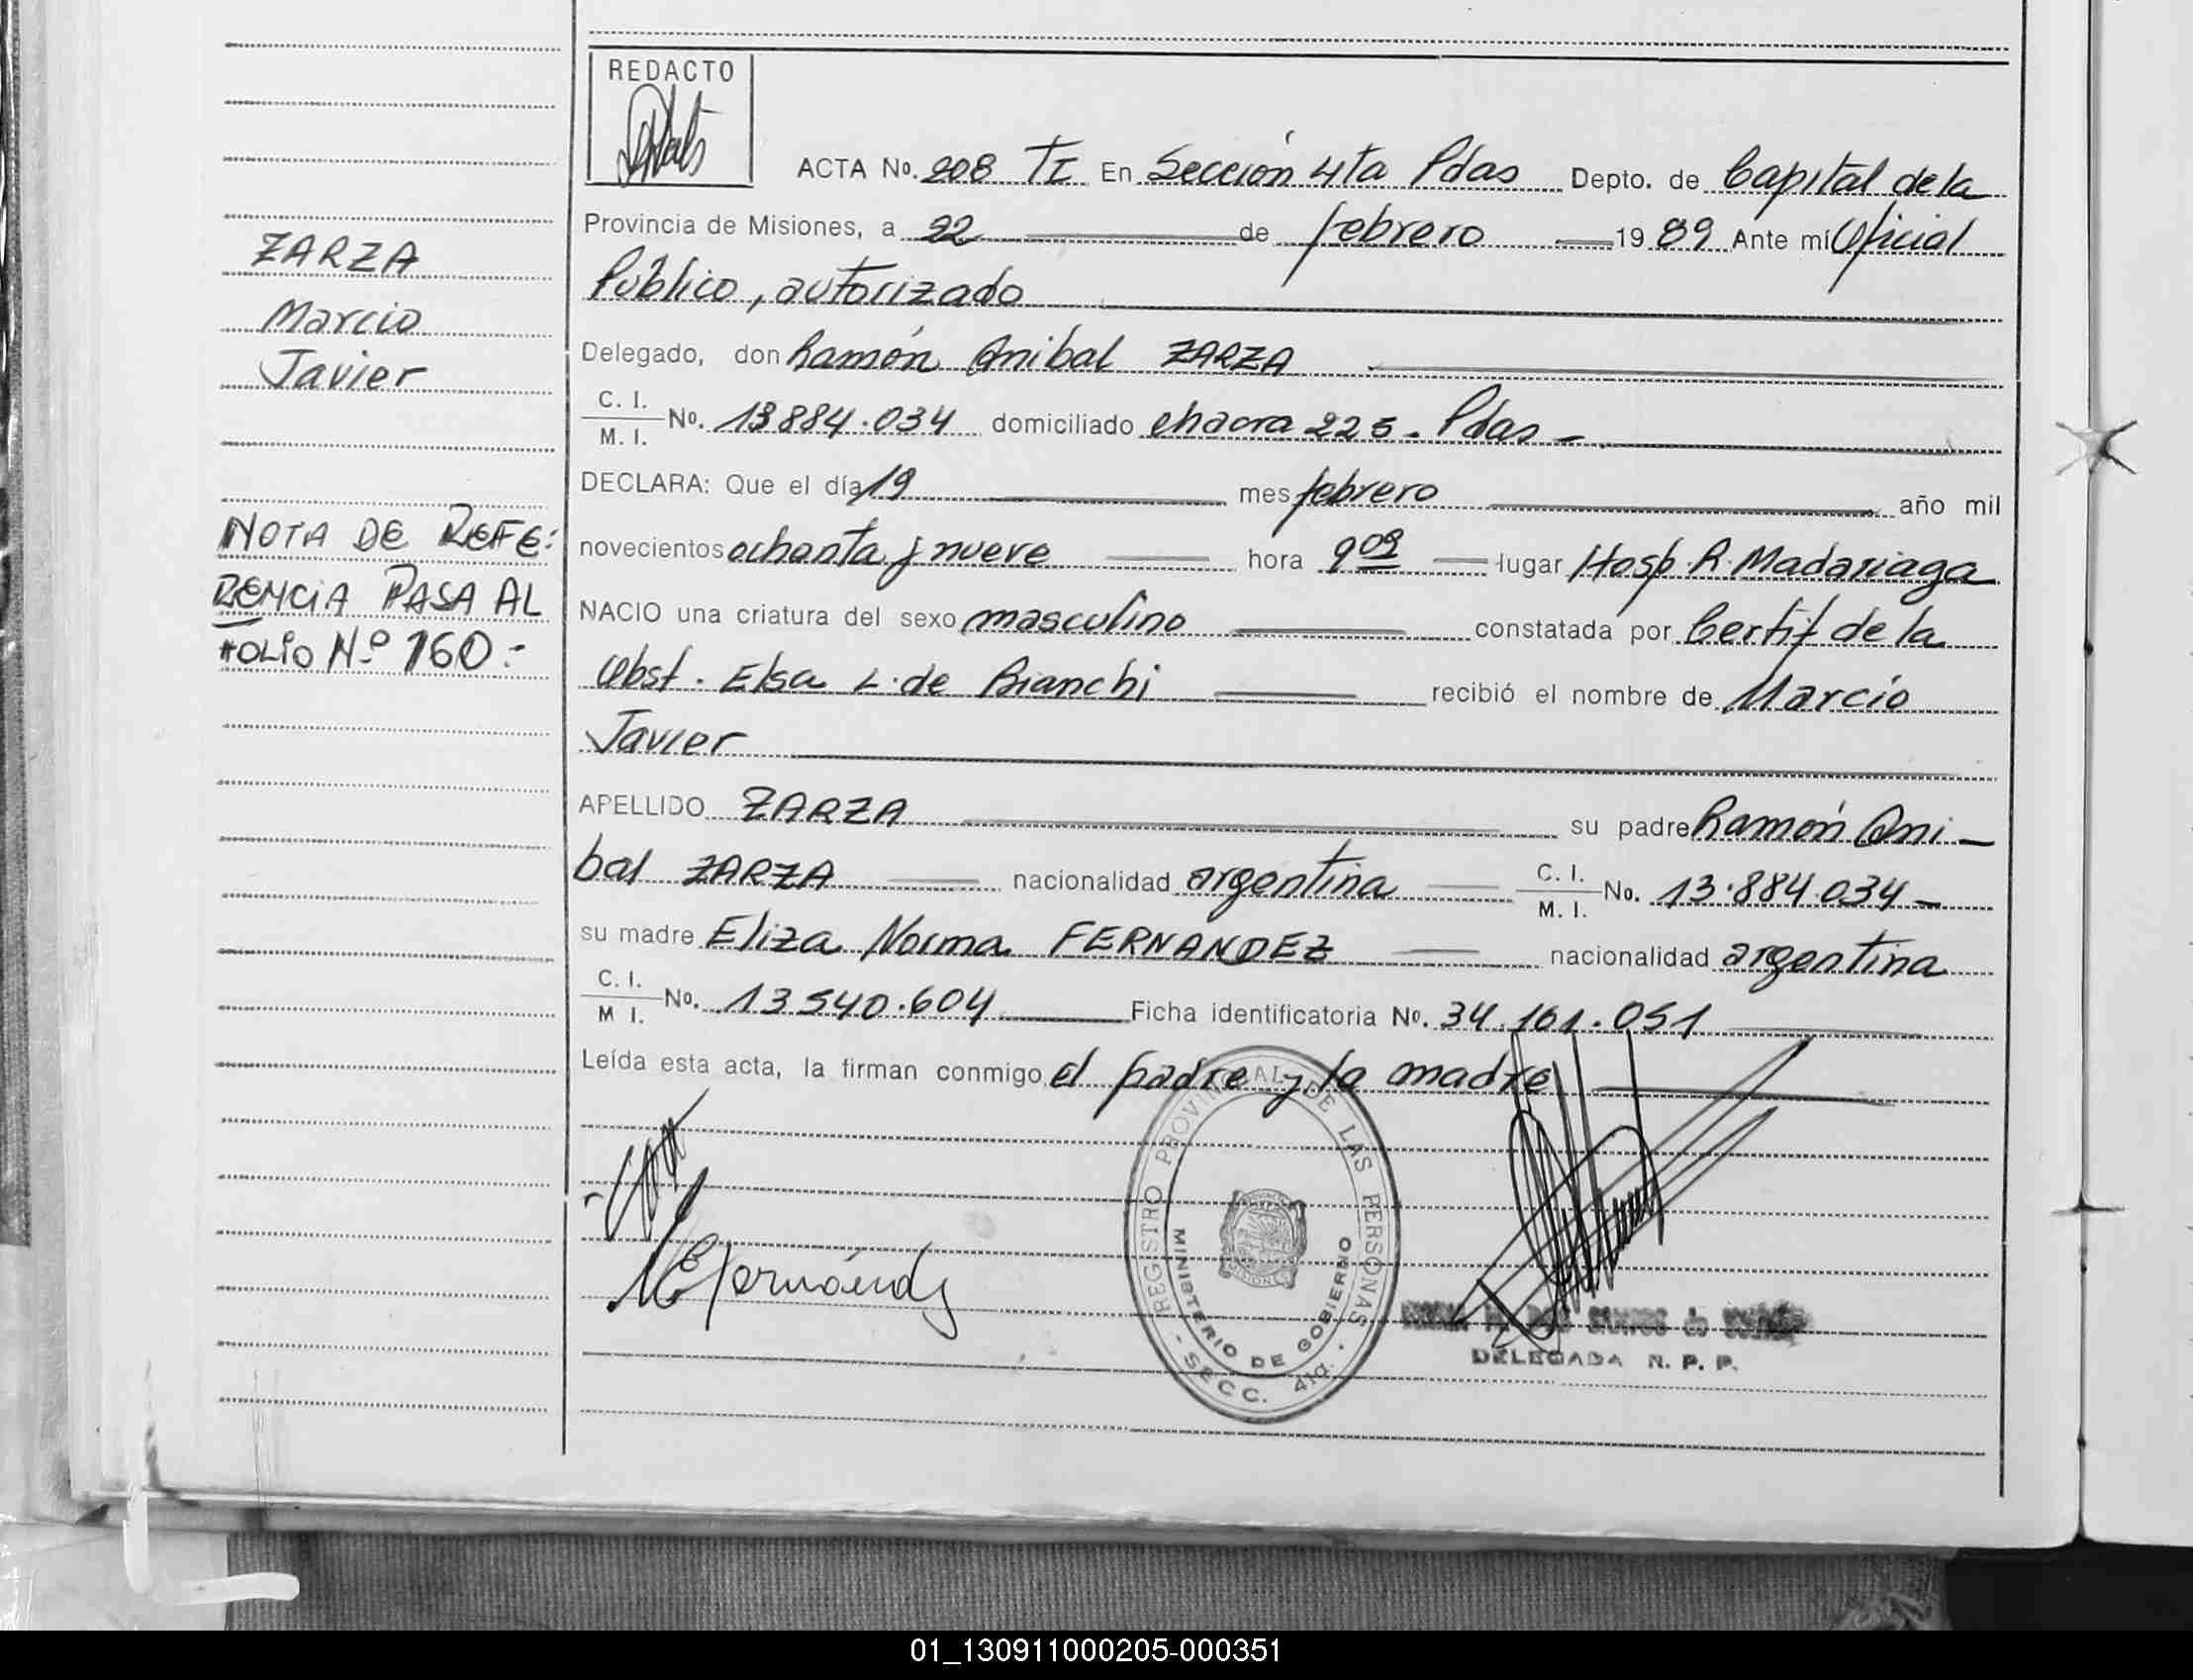 REDACTO
ACTA No. 208 TI En Sección 4ta Pdas Depto. de Capital de la
Provincia de Misiones, a 22 de febrero 1989 Ante mí Oficial
Público, autorizado
Delegado, don Ramón Anibal ZARZA
C. I.
M. I. No. 13884.034 domiciliado chacra 225 - Pdas -
DECLARA: Que el día 19 mes febrero año mil
novecientos ochenta y nueve hora 9 09 lugar Hosp. R. Madariaga
NACIO una criatura del sexo masculino constatada por Certif de la
Obst. Elsa L. de Bianchi recibió el nombre de Marcio
Javier
APELLIDO ZARZA su padre Ramón Ani -
bal ZARZA nacionalidad argentina C. I.
M. I. No. 13.884.034 -
su madre Eliza Norma FERNANDEZ nacionalidad argentina
C. I.
M I. No. 13540.604 Ficha identificatoria No. 34.161.051
Leída esta acta, la firman conmigo el padre y la madre
ZARZA
Marcio
Javier
NOTA DE REFE:
RENCIA PASA AL
FOLIO Nº 160.-
REGISTRO PROVINCIAL DE LAS PERSONAS
MINISTERIO DE GOBIERNO
- SECC. 4ta. -
DELEGADA N. P. P.
01_130911000205-000351